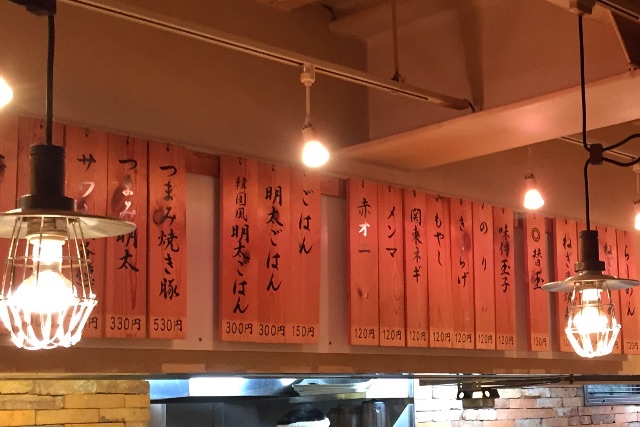 替玉
130円
味付玉子
120円
のり
120円
きくらげ
120円
もやし
120円
関東ネギ
120円
メンマ
120円
赤オー
120円
ごはん
150円
明太ごはん
300円
韓国風明太ごはん
300円
つまみ焼き豚
530円
つまみ明太
330円